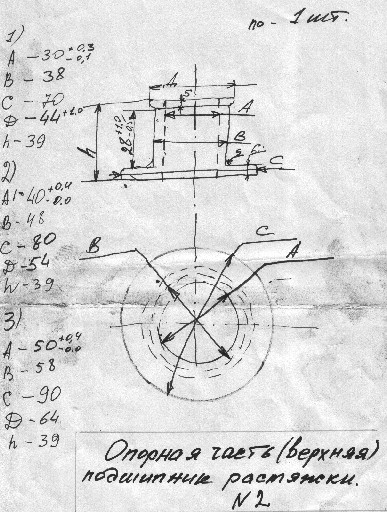 по - 1 шт.
1)
A - 30 +0,3 -0,1
B - 38
C - 70
D - 44 +1.0
h - 39
2)
A1 - 40 +0,4 -0.0
B - 48
C - 80
D - 54
h - 39
3)
A - 50 +0,4 -0.0
B - 58
C - 90
D - 64
h - 39
A
5
A
h
B
C
B
C
A
Опорная часть (верхняя)
подшипник растяжки.
N2